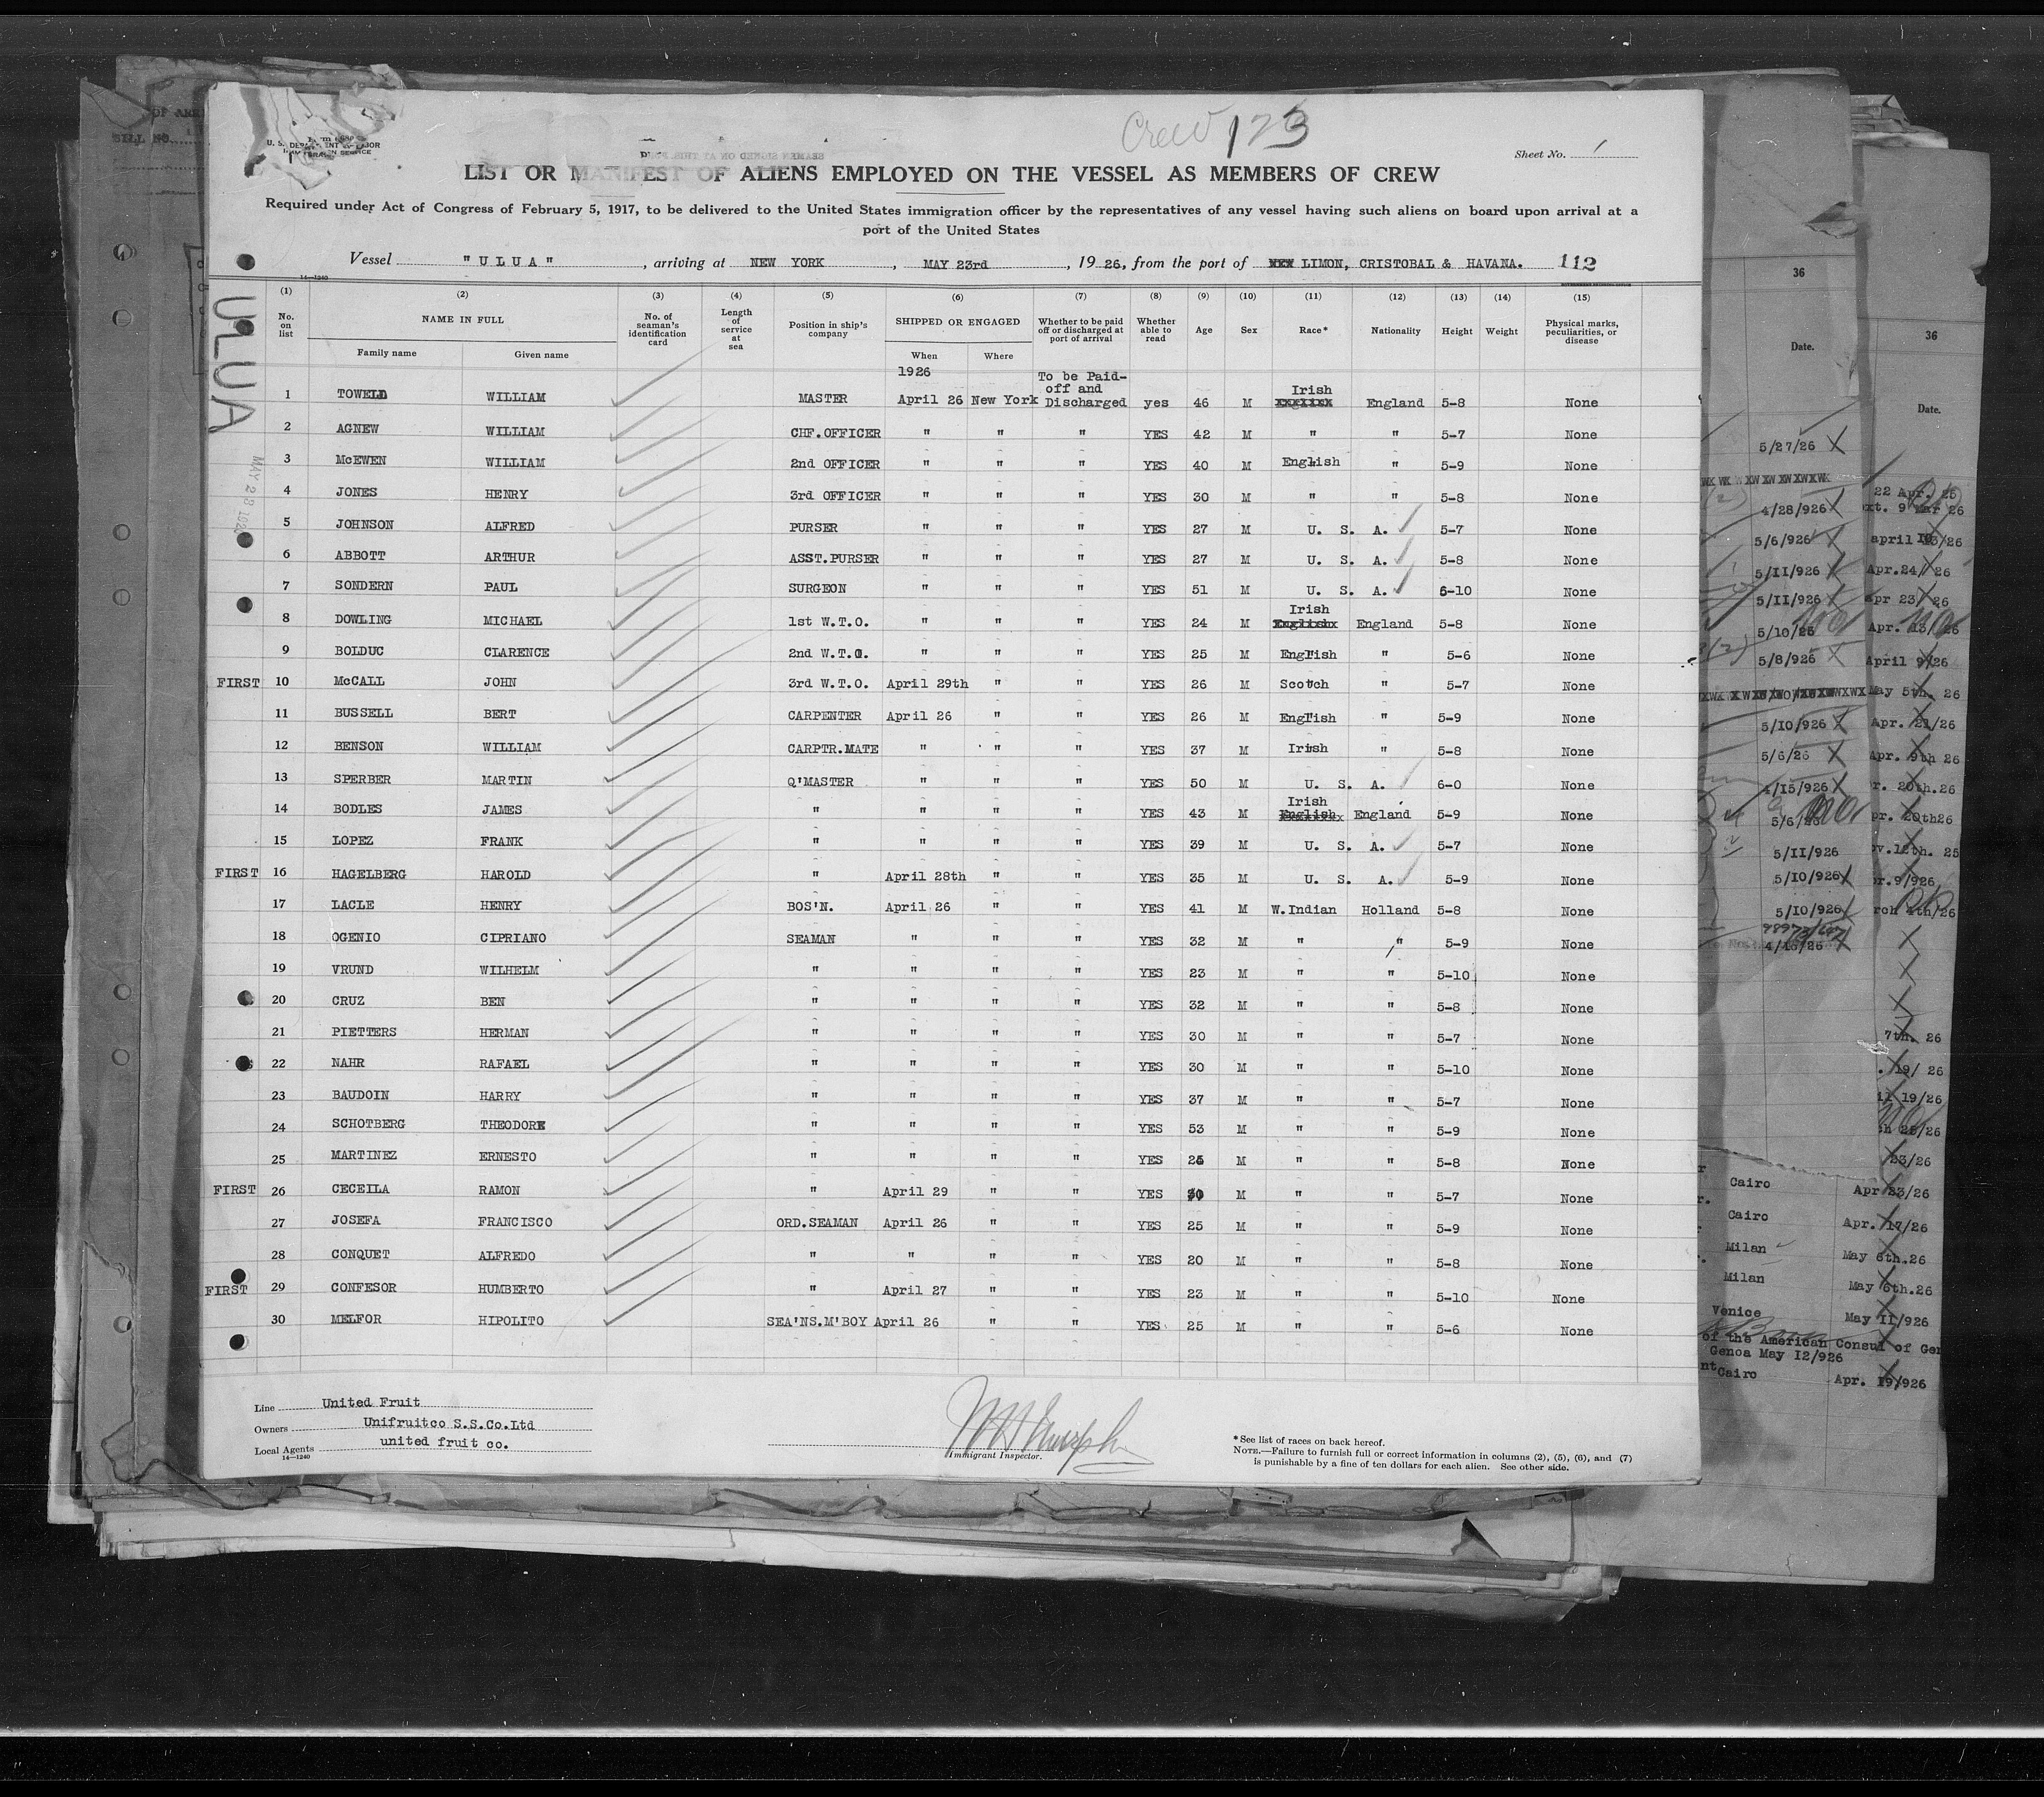 Crew 123
U. S. DEPARTMENT OF LABOR
IMMIGRATION SERVICE
Sheet No. 1
SEAMEN SIGNED ON AT THIS
LIST OR MANIFEST OF ALIENS EMPLOYED ON THE VESSEL AS MEMBERS OF CREW
Required under Act of Congress of February 5, 1917, to be delivered to the United States immigration officer by the representatives of any vessel having such aliens on board upon arrival at a
port of the United States
Vessel "ULUA", arriving at NEW YORK, MAY 23rd, 1926, from the port of LIMON, CRISTOBAL & HAVANA. 112
14—1240
ULUA
(1) (2) (3) (4) (5) (6) (7) (8) (9) (10) (11) (12) (13) (14) (15)
No. on list NAME IN FULL Family name Given name No. of seaman's identification card Length of service at sea Position in ship's company SHIPPED OR ENGAGED When Where Whether to be paid off or discharged at port of arrival Whether able to read Age Sex Race* Nationality Height Weight Physical marks, peculiarities, or disease
1926 To be Paid-off and
1 TOWELL WILLIAM MASTER April 26 New York Discharged yes 46 M Irish England 5-8 None
2 AGNEW WILLIAM CHF.OFFICER " " " YES 42 M " " 5-7 None
3 McEWEN WILLIAM 2nd OFFICER " " " YES 40 M English " 5-9 None
4 JONES HENRY 3rd OFFICER " " " YES 30 M " " 5-8 None
5 JOHNSON ALFRED PURSER " " " YES 27 M U. S. A. 5-7 None
6 ABBOTT ARTHUR ASST.PURSER " " " YES 27 M U. S. A. 5-8 None
7 SONDERN PAUL SURGEON " " " YES 51 M U. S. A. 5-10 None
8 DOWLING MICHAEL 1st W.T.O. " " " YES 24 M Irish England 5-8 None
9 BOLDUC CLARENCE 2nd W.T.O. " " " YES 25 M English " 5-6 None
FIRST 10 McCALL JOHN 3rd W.T.O. April 29th " " YES 26 M Scotch " 5-7 None
11 BUSSELL BERT CARPENTER April 26 " " YES 26 M English " 5-9 None
12 BENSON WILLIAM CARPTR.MATE " " " YES 37 M Irish " 5-8 None
13 SPERBER MARTIN Q'MASTER " " " YES 50 M U. S. A. 6-0 None
14 BODLES JAMES " " " " YES 43 M Irish England 5-9 None
15 LOPEZ FRANK " " " " YES 39 M U. S. A. 5-7 None
FIRST 16 HAGELBERG HAROLD " April 28th " " YES 35 M U. S. A. 5-9 None
17 LACLE HENRY BOS'N. April 26 " " YES 41 M W.Indian Holland 5-8 None
18 OGENIO CIPRIANO SEAMAN " " " YES 32 M " " 5-9 None
19 VRUND WILHELM " " " " YES 23 M " " 5-10 None
20 CRUZ BEN " " " " YES 32 M " " 5-8 None
21 PIETTERS HERMAN " " " " YES 30 M " " 5-7 None
22 NAHR RAFAEL " " " " YES 30 M " " 5-10 None
23 BAUDOIN HARRY " " " " YES 37 M " " 5-7 None
24 SCHOTBERG THEODORE " " " " YES 53 M " " 5-9 None
25 MARTINEZ ERNESTO " " " " YES 26 M " " 5-8 None
FIRST 26 CECEILA RAMON " April 29 " " YES 30 M " " 5-7 None
27 JOSEFA FRANCISCO ORD.SEAMAN April 26 " " YES 25 M " " 5-9 None
28 CONQUET ALFREDO " " " " YES 20 M " " 5-8 None
FIRST 29 CONFESOR HUMBERTO " April 27 " " YES 23 M " " 5-10 None
30 MELFOR HIPOLITO SEA'NS.M'BOY April 26 " " YES 25 M " " 5-6 None
Line United Fruit
Owners Unifruitco S.S.Co.Ltd
Local Agents united fruit co.
14—1240
Immigrant Inspector.
*See list of races on back hereof.
NOTE.—Failure to furnish full or correct information in columns (2), (5), (6), and (7)
is punishable by a fine of ten dollars for each alien. See other side.
36
Date.
5/27/26
4/28/926
5/6/926
5/11/926
5/11/926
5/10/26
5/8/926
5/10/926
5/6/26
4/15/926
5/11/926
5/10/926
5/10/926
Cairo
Cairo
Milan
Milan
Venice
of the American Consul of Gen
Genoa May 12/926
Cairo
36
Date.
22 Apr. 25
Apr.24/26
Apr. 13/26
April 9/26
May 5th. 26
Apr. 21/26
Apr. 9th 26
7th. 26
19/26
Apr 23/26
Apr. 17/26
May 6th.26
May 6th.26
May 11/926
Apr. 19/926